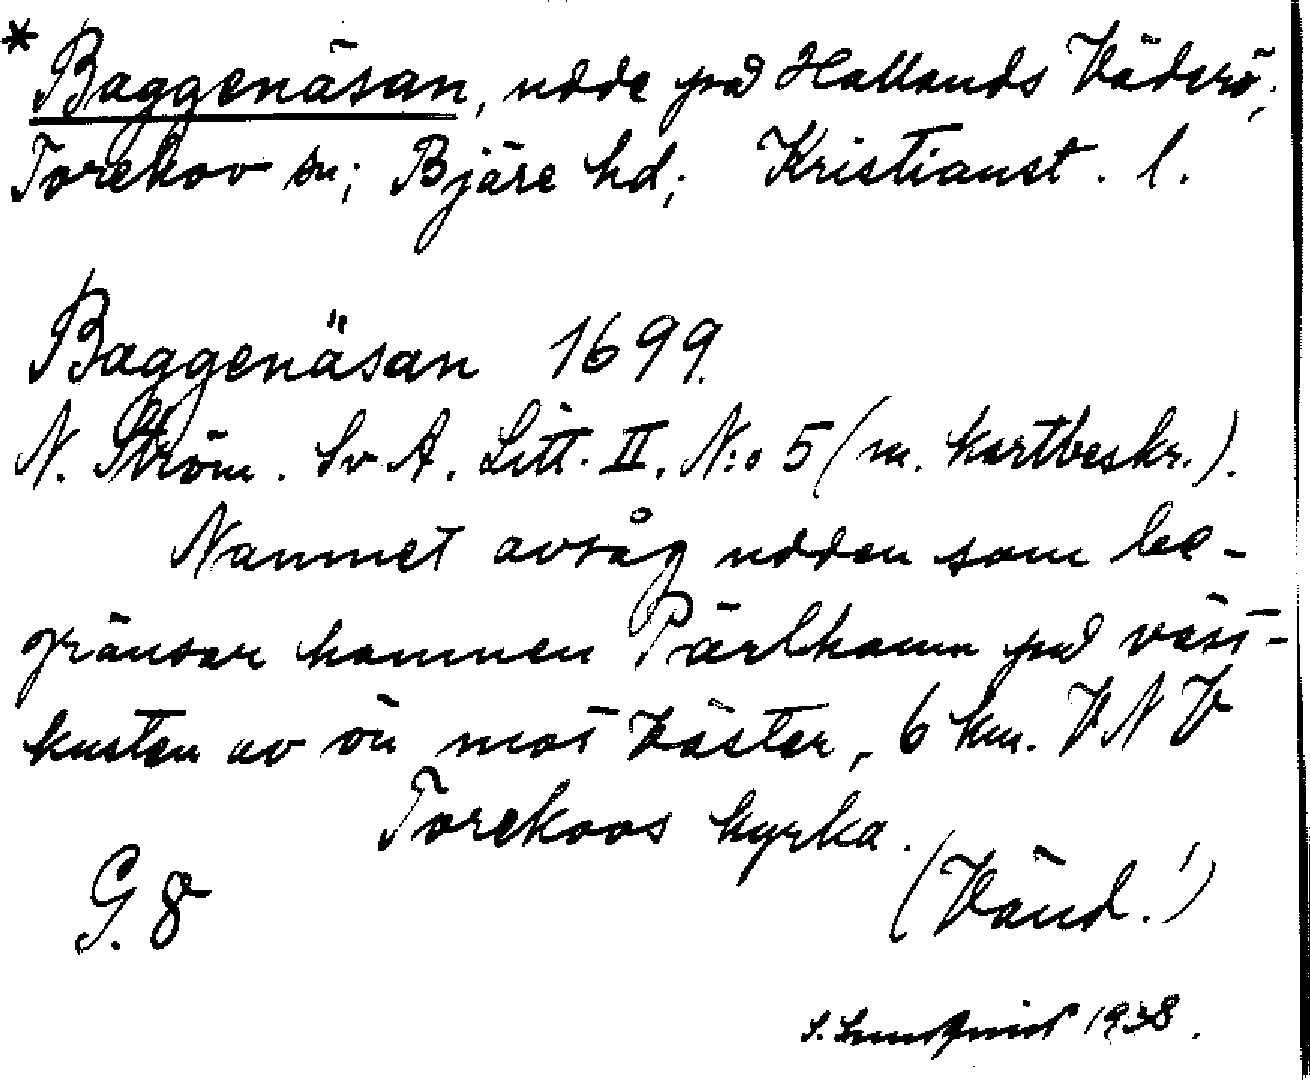 * Baggenäsan, udde på Hallands Väderö;
Torekov sn; Bjäre hd; Kristianst. l.
Baggenäsan 1699.
N. Ström. Sv A. Litt. II. N:o 5 (m. kartbeskr.).
Namnet avsåg udden som be-
gränsar hamnen Pärlhamn på väst-
kusten av ön mot Väster, 6 km. VNV
Torekovs kyrka.
(Vänd!)
G. 8
S. Lundqvist 1938.